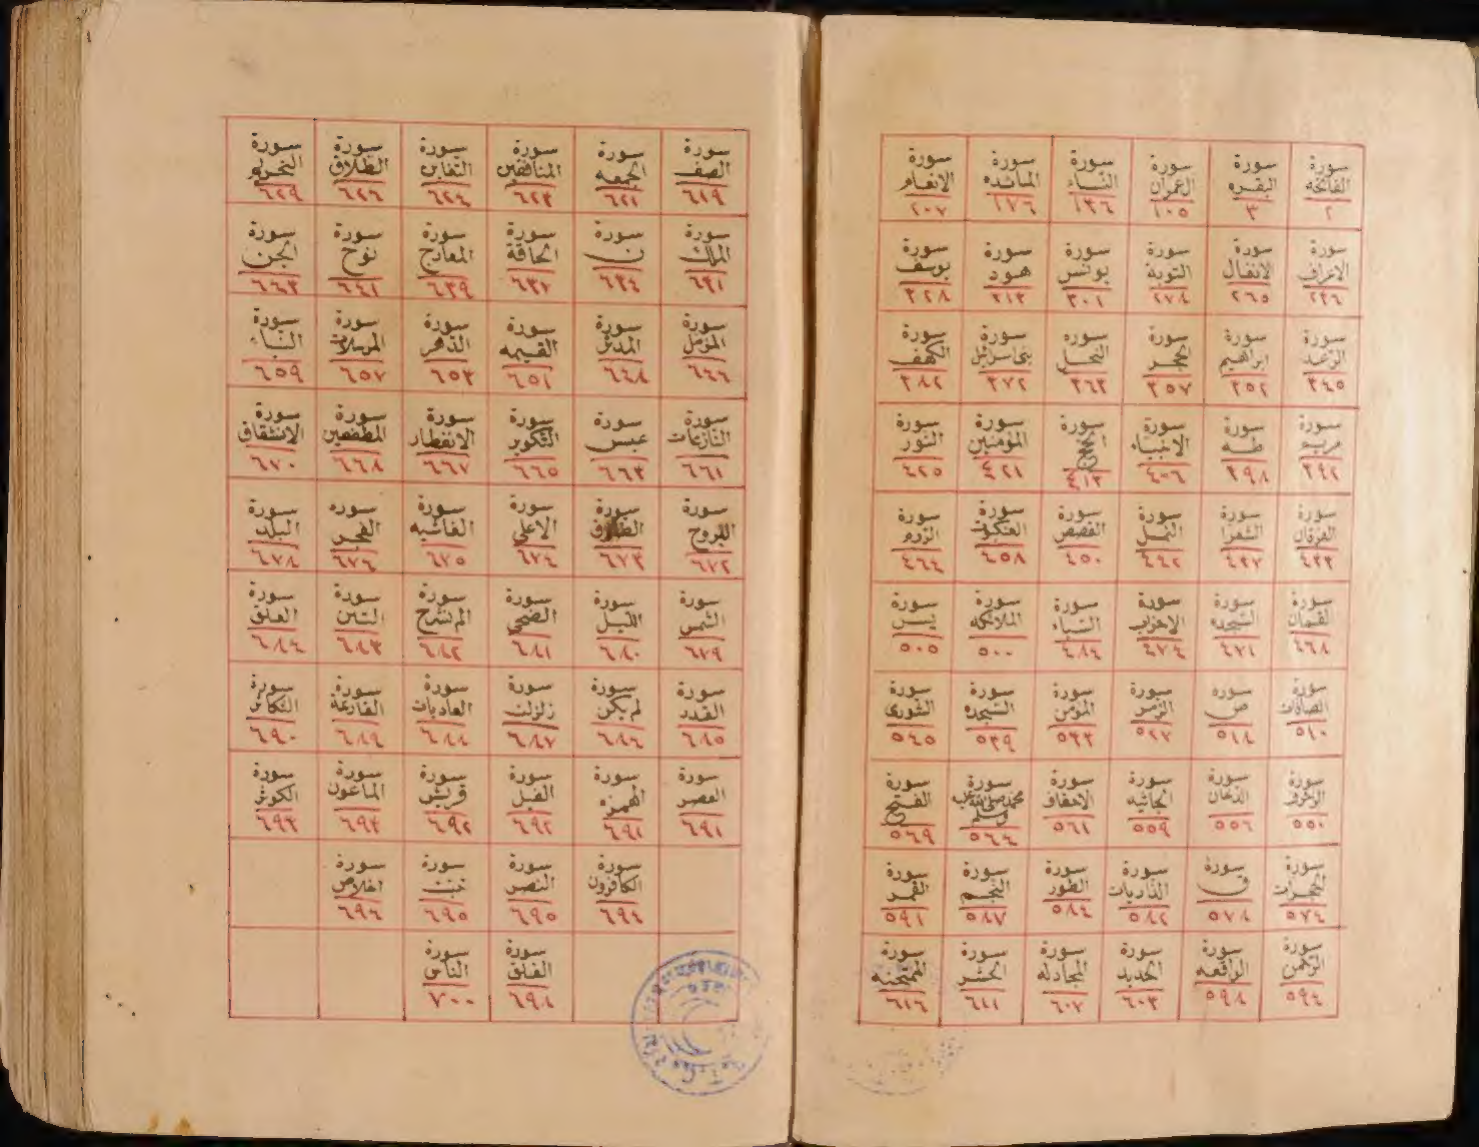 سورة الفاتحه ٢
سورة البقره ٣
سورة العمران ١٠٥
سورة النساء ١٣٦
سورة المائده ١٧٦
سورة الانعام ٢٠٧
سورة الاعراف ٢٣٦
سورة لانفال ٢٦٥
سورة التوبة ٢٧٨
سورة يونس ٣٠١
سورة هود ٣١٣
سورة يوسف ٣٢٨
سورة الرعد ٣٤٥
سورة ابراهيم ٣٥٢
سورة الحجر ٣٥٧
سوره النحل ٣٦٣
سورة بنى اسرائيل ٣٧٢
سورة الكهف ٣٨٢
سورة مريم ٣٩٢
سورة طه ٣٩٨
سورة الانبياء ٤٠٦
سورة الحج ٤١٣
سورة المؤمنين ٤٢١
سورة النور ٤٢٥
سورة الفرقان ٤٣٣
سورة الشعرا ٤٣٧
سورة النمل ٤٤٢
سورة القصص ٤٥٠
سورة العنكبوت ٤٥٨
سورة الروم ٤٦٤
سورة لقمان ٤٦٨
سورة السجده ٤٧١
سورة الاحزاب ٤٧٤
سورة السباء ٤٨٤
سورة الملائكه ٥٠٠
سورة يس ٥٠٥
سورة الصافات ٥١٠
سوره ص ٥١٨
سورة الزمر ٥٢٧
سورة المؤمن ٥٣٣
سورة السجده ٥٣٩
سورة الشورى ٥٤٥
سورة الزخرف ٥٥٠
سورة الدخان ٥٥٦
سورة الجاثيه ٥٥٩
سورة الاحقاف ٥٦١
سورة محمد صلى الله عليه وسلم ٥٦٤
سورة الفتح ٥٦٩
سورة الحجرات ٥٧٤
سورة ق ٥٧٨
سورة الذاريات ٥٨٢
سورة الطور ٥٨٤
سورة النجم ٥٨٧
سورة القمر ٥٩١
سورة الرحمن ٥٩٤
سورة الواقعه ٥٩٨
سورة الحديد ٦٠٣
سورة المجادله ٦٠٧
سورة الحشر ٦١١
سورة الممتحنه ٦١٦
سورة الصف ٦١٩
سورة الجمعه ٦٢١
سورة المنافقين ٦٢٣
سورة التغابن ٦٢٤
سورة الطلاق ٦٢٦
سورة التحريم ٦٢٩
سورة الملك ٦٣١
سورة ن ٦٣٤
سورة الحاقة ٦٣٧
سورة المعارج ٦٣٩
سورة نوح ٦٤١
سورة الجن ٦٤٣
سورة المزمل ٦٤٦
سورة المدثر ٦٤٨
سورة القيمه ٦٥١
سورة الدهر ٦٥٣
سورة المرسلات ٦٥٧
سورة النباء ٦٥٩
سورة النازعات ٦٦١
سورة عبس ٦٦٣
سورة التكوير ٦٦٥
سورة الانفطار ٦٦٧
سورة المطففين ٦٦٨
سورة الانشقاق ٦٧٠
سورة البروج ٦٧٢
سورة الطارق ٦٧٣
سورة الاعلى ٦٧٤
سورة الغاشيه ٦٧٥
سوره الفجر ٦٧٦
سورة البلد ٦٧٨
سورة الشمس ٦٧٩
سورة الليل ٦٨٠
سورة الضحى ٦٨١
سورة الم نشرح ٦٨٢
سورة التين ٦٨٣
سورة العلق ٦٨٤
سورة القدر ٦٨٥
سورة لم يكن ٦٨٦
سورة زلزلت ٦٨٧
سورة العاديات ٦٨٨
سورة القارعة ٦٨٩
سورة التكاثر ٦٩٠
سورة العصر ٦٩١
سورة الهمزه ٦٩١
سورة الفيل ٦٩٢
سورة قريش ٦٩٢
سورة الماعون ٦٩٣
سورة الكوثر ٦٩٣
سورة الكافرون ٦٩٤
سورة النصر ٦٩٥
سورة تبت ٦٩٥
سورة اخلاص ٦٩٦
سورة الفلق ٦٩٨
سورة الناس ٧٠٠